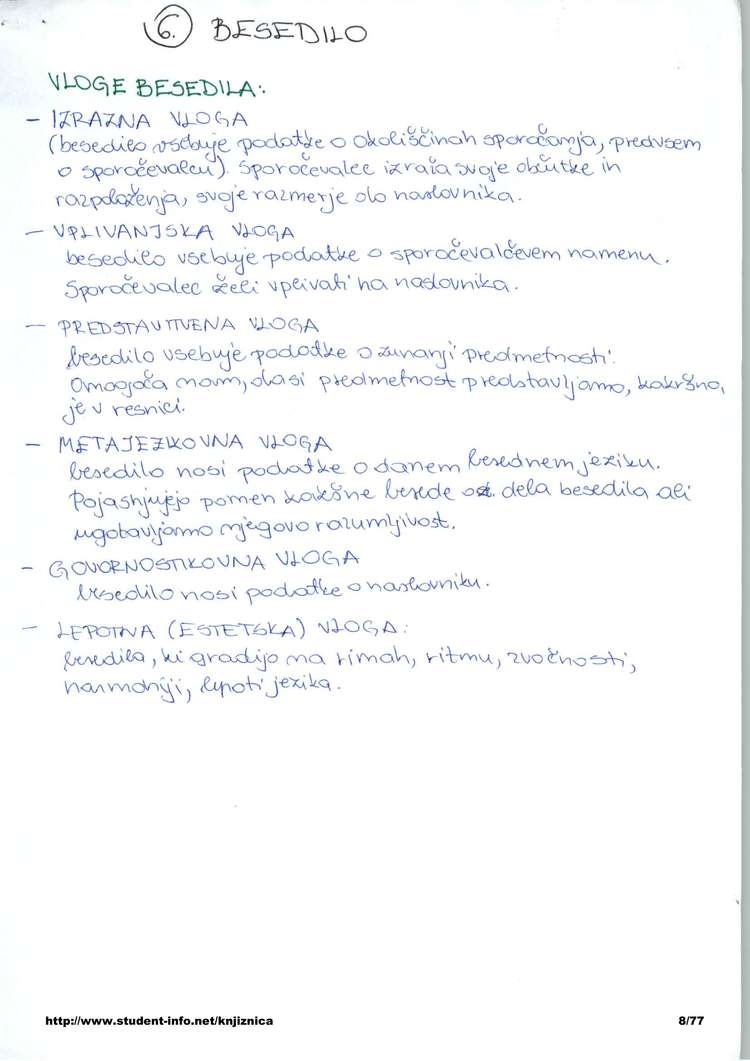 6. BESEDILO
VLOGE BESEDILA:
- IZRAZNA VLOGA
(besedilo vsebuje podatke o okoliščinah sporočanja, predvsem
o sporočevalcu). Sporočevalec izraža svoje občutke in
razpoloženja, svoje razmerje do naslovnika.
- VPLIVANJSKA VLOGA
besedilo vsebuje podatke o sporočevalčevem namenu.
Sporočevalec želi vplivati na naslovnika.
- PREDSTAVITVENA VLOGA
besedilo vsebuje podatke o zunanji predmetnosti.
Omogoča nam, da si predmetnost predstavljamo, kakršna,
je v resnici.
- METAJEZIKOVNA VLOGA
besedilo nosi podatke o danem besednem jeziku.
Pojasnjujejo pomen kakšne besede oz. dela besedila ali
ugotavljamo njegovo razumljivost.
- GOVORNOSTIKOVNA VLOGA
besedilo nosi podatke o naslovniku.
- LEPOTNA (ESTETSKA) VLOGA:
besedila, ki gradijo na rimah, ritmu, zvočnosti,
harmoniji, lepoti jezika.
http://www.student-info.net/knjiznica 8/77